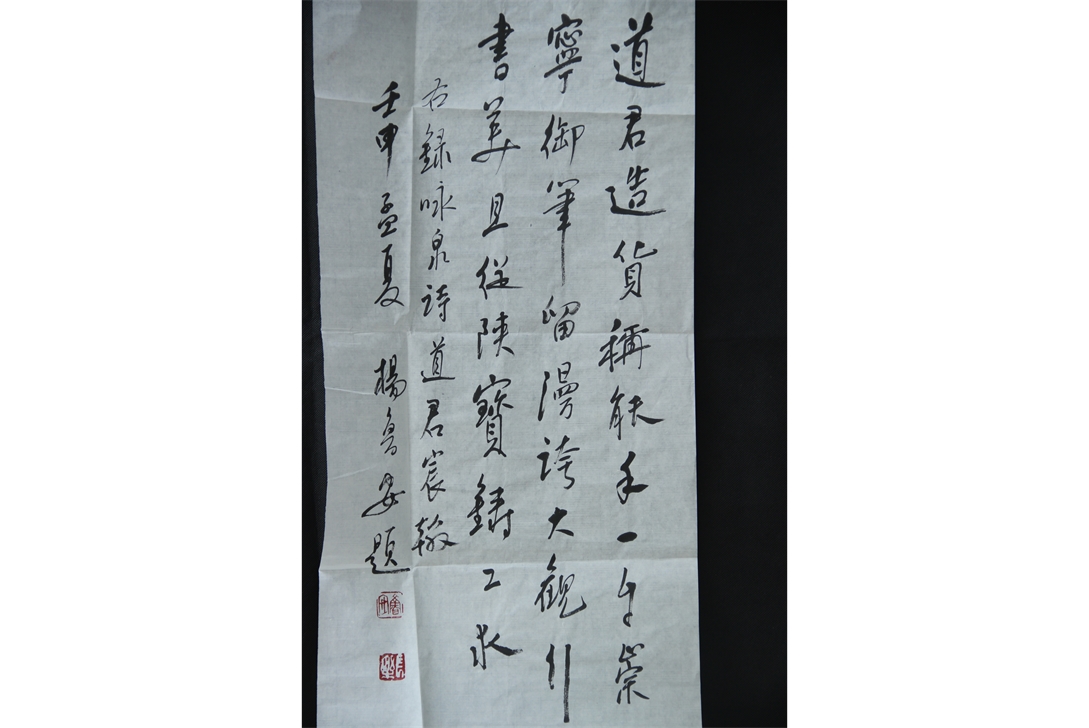 道君造貨稱能手一崇
寧御筆留漫誇大觀行
書美且從陝寶鑄工求
右錄咏泉詩道君宸翰
壬申孟夏 楊魯安題
魯安
長樂